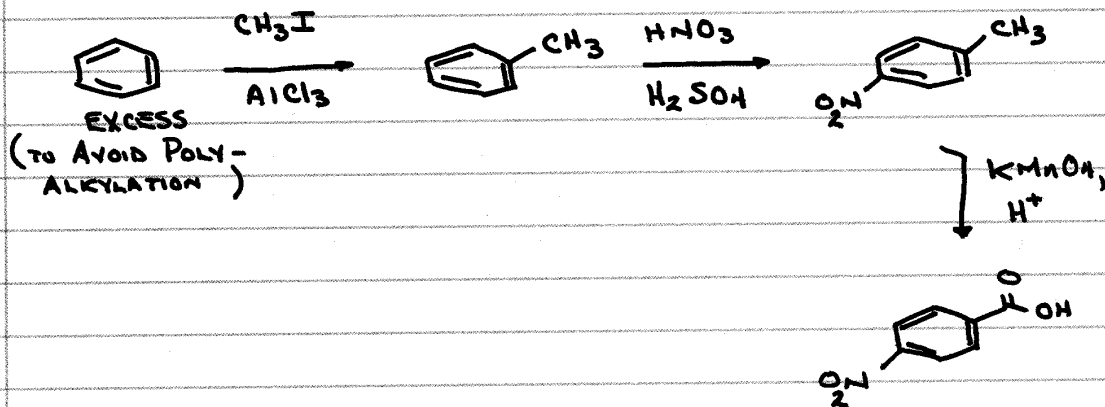 CH3I
AlCl3
EXCESS
(TO AVOID POLY-
ALKYLATION)
CH3
HNO3
H2SO4
CH3
O2N
KMnO4,
H+
O
OH
O2N